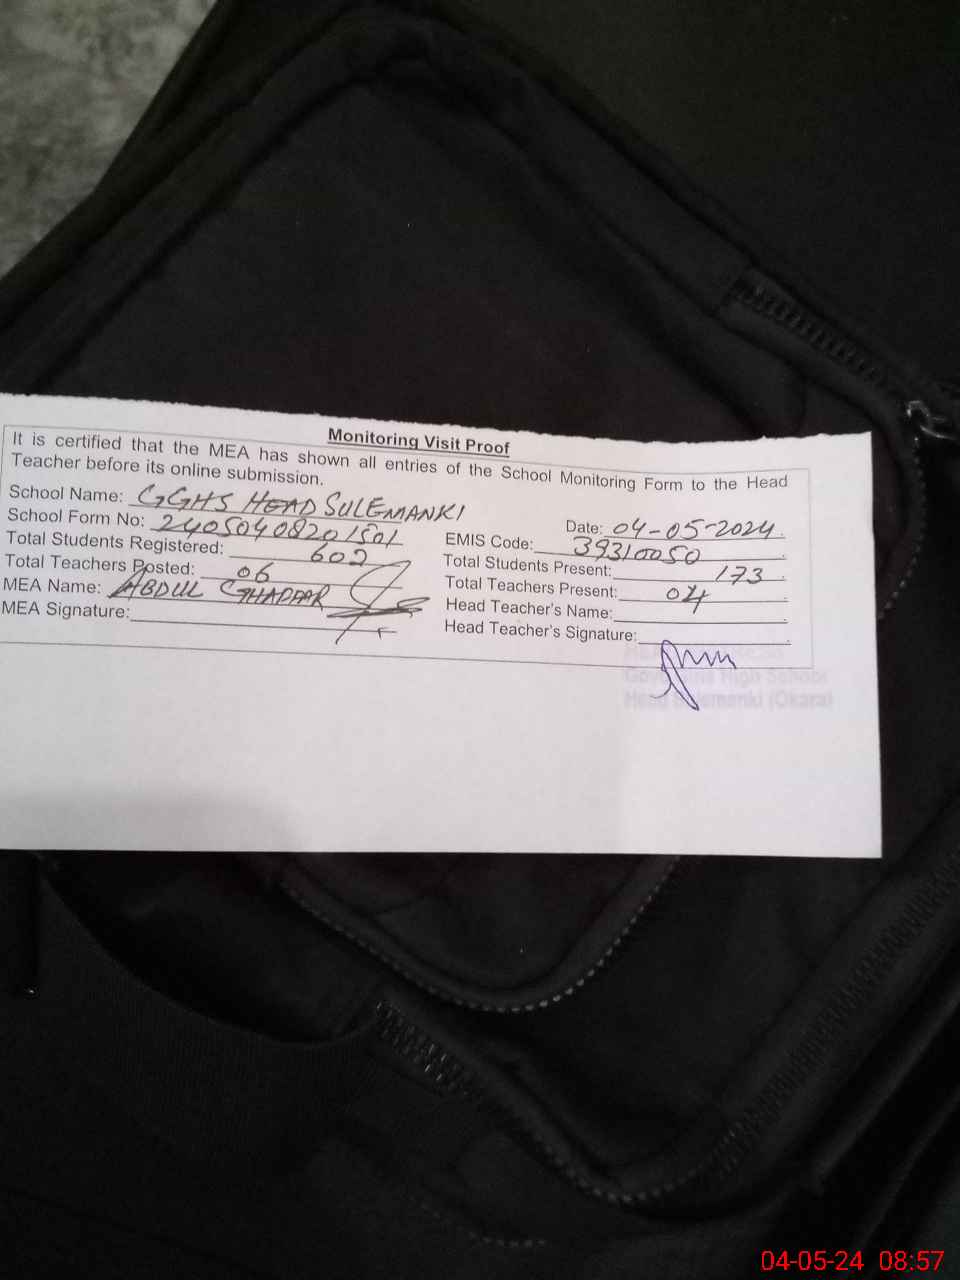 Monitoring Visit Proof
It is certified that the MEA has shown all entries of the School Monitoring Form to the Head
Teacher before its online submission.
School Name: GGHS HEAD SULEMANKI
Date: 04-05-2024
School Form No: 24050408201501
EMIS Code: 39310050
Total Students Registered: 602
Total Students Present: 173
Total Teachers Posted: 06
Total Teachers Present: 04
MEA Name: ABDUL GHAFFAR
Head Teacher's Name:
MEA Signature:
Head Teacher's Signature:
Girls High School
Head Sulemanki (Okara)
04-05-24 08:57